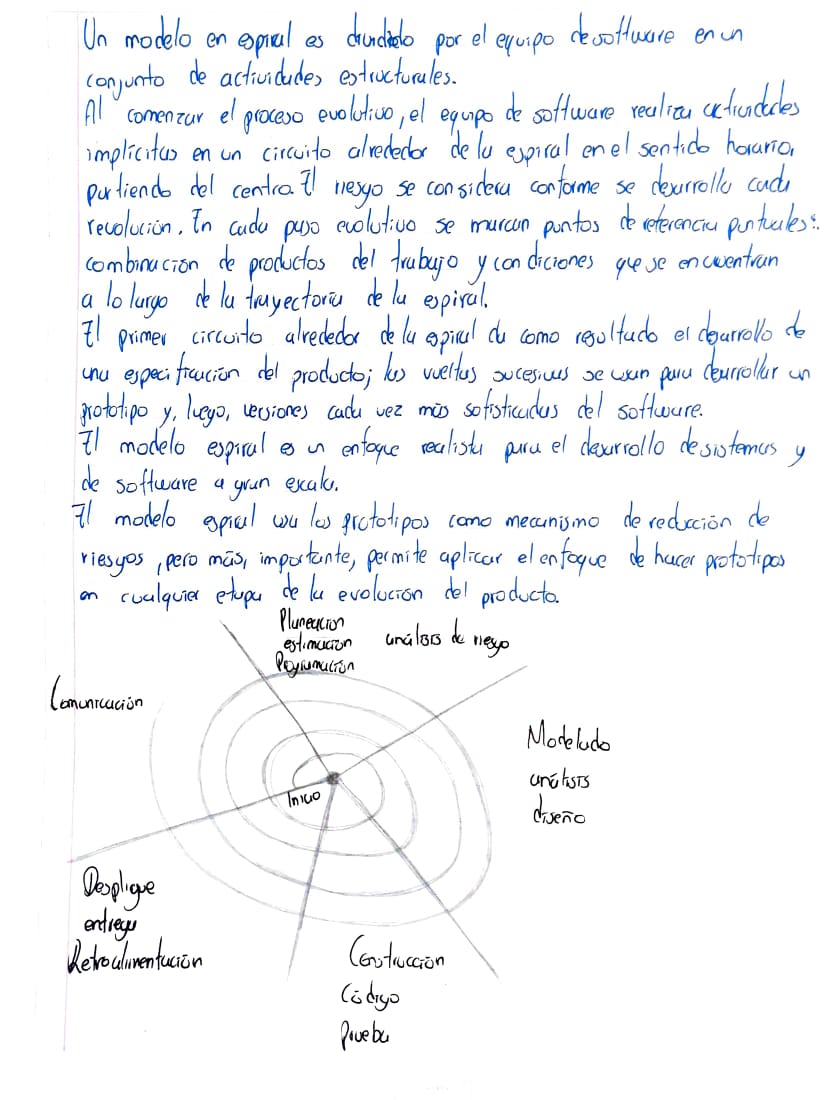 Un modelo en espiral es dividido por el equipo de software en un
conjunto de actividades estructurales.
Al comenzar el proceso evolutivo, el equipo de software realiza actividades
implícitas en un circuito alrededor de la espiral en el sentido horario,
partiendo del centro. El riesgo se considera conforme se desarrolla cada
revolución. En cada paso evolutivo se marcan puntos de referencia puntuales:
combinación de productos del trabajo y condiciones que se encuentran
a lo largo de la trayectoria de la espiral.
El primer circuito alrededor de la espiral da como resultado el desarrollo de
una especificación del producto; las vueltas sucesivas se usan para desarrollar un
prototipo y, luego, versiones cada vez más sofisticadas del software.
El modelo espiral es un enfoque realista para el desarrollo de sistemas y
de software a gran escala.
El modelo espiral usa los prototipos como mecanismo de reducción de
riesgos, pero más, importante, permite aplicar el enfoque de hacer prototipos
en cualquier etapa de la evolución del producto.
Planeación
estimación análisis de riesgo
Programación
Comunicación
Modelado
análisis
diseño
Inicio
Despligue
entrega
Retroalimentación
Construcción
Código
Prueba